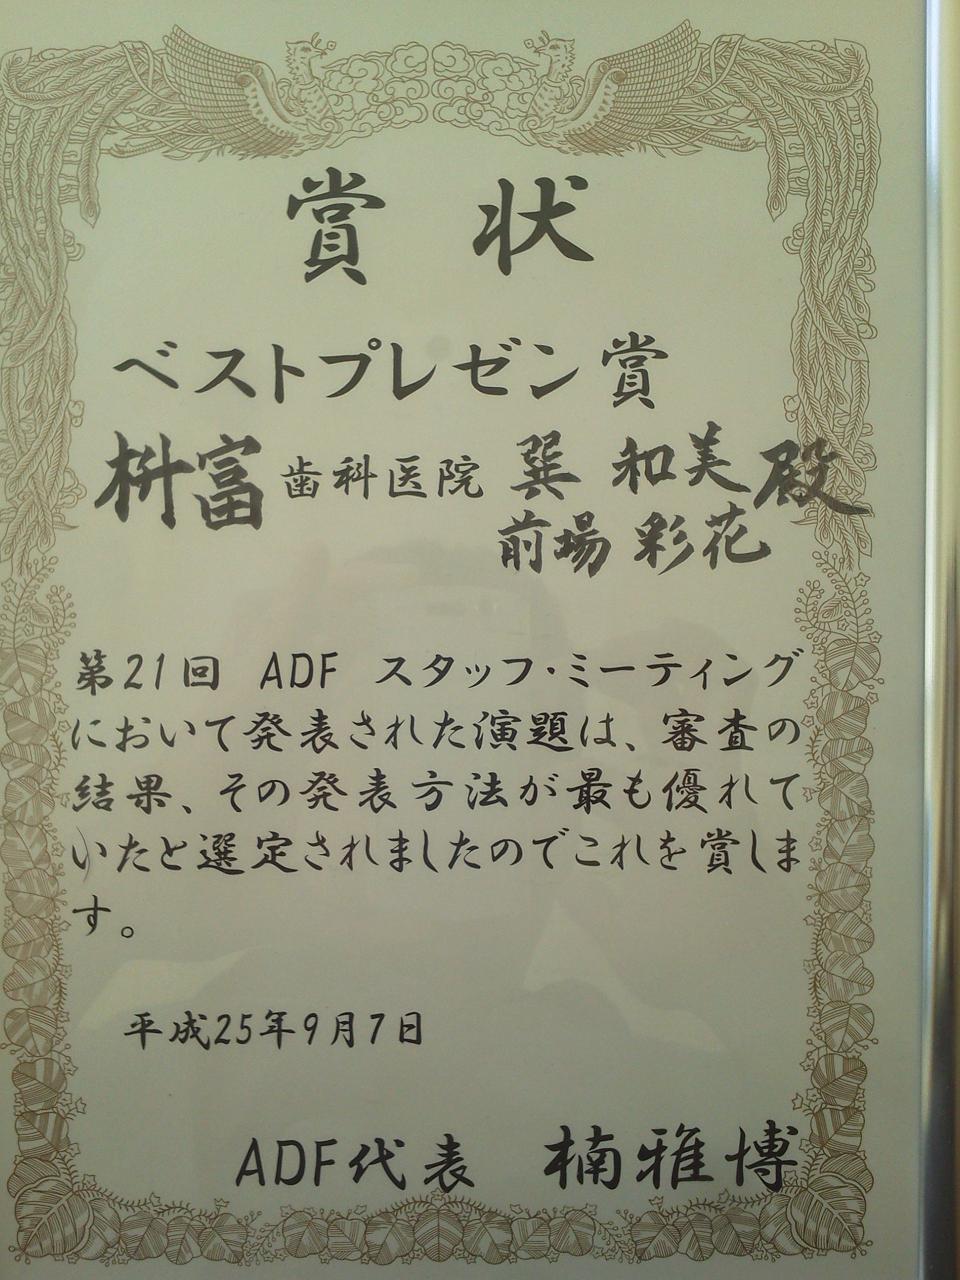 賞 状
ベストプレゼン賞
枡富歯科医院 巽 和美殿
前場 彩花
第21回 ADF スタッフ・ミーティング
において発表された演題は、審査の
結果、その発表方法が最も優れて
いたと選定されましたのでこれを賞しま
す。
平成25年9月7日
ADF代表 楠雅博